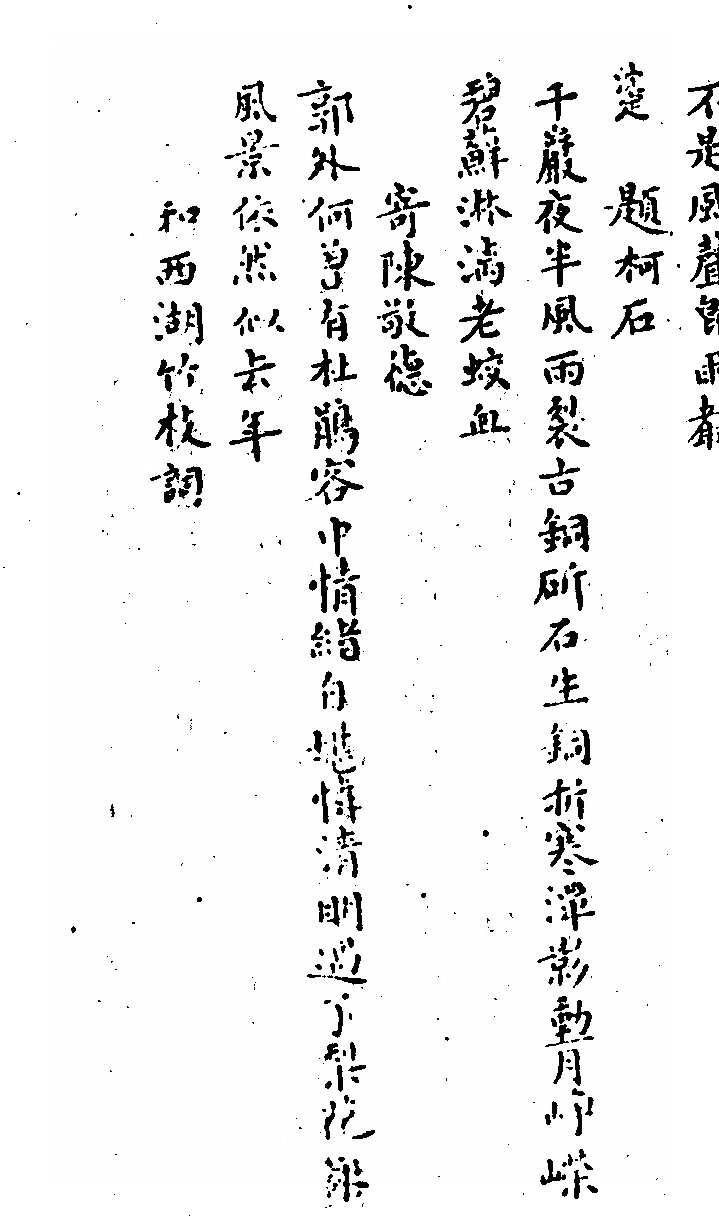 不是風聲即雨聲
題柯石
千巖夜半風雨裂古銅斫石生銅折寒潭影動月崢嶸
碧蘚淋漓老蛟血
寄陳敬德
郭外何曾有杜鵑客中情緒自悽清明過了梨花
風景依然似去年
和西湖竹枝詞